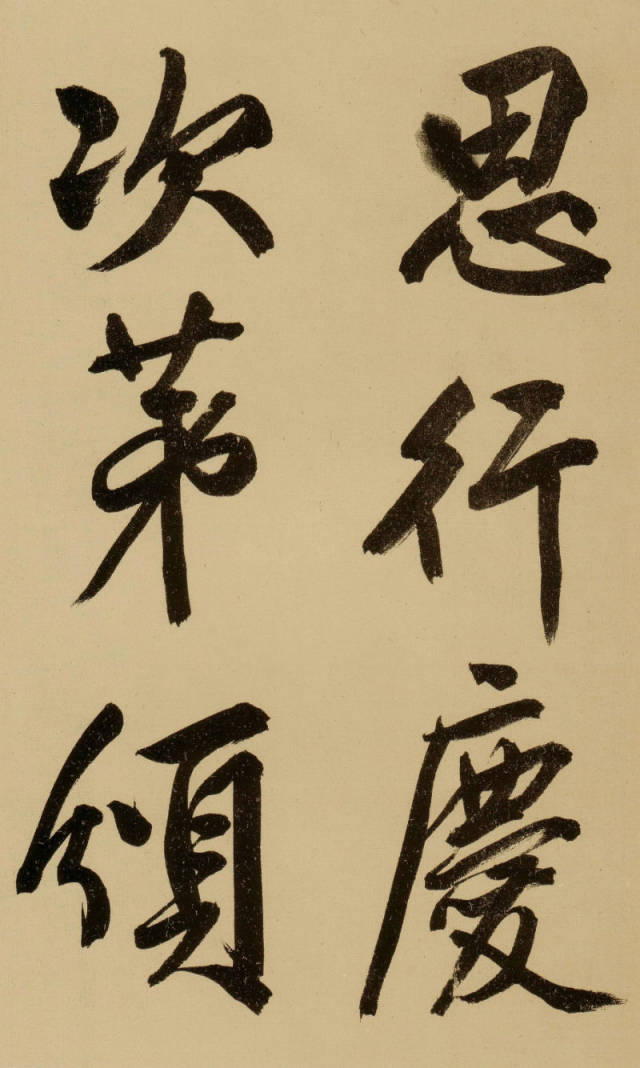 恩行慶
次第頒